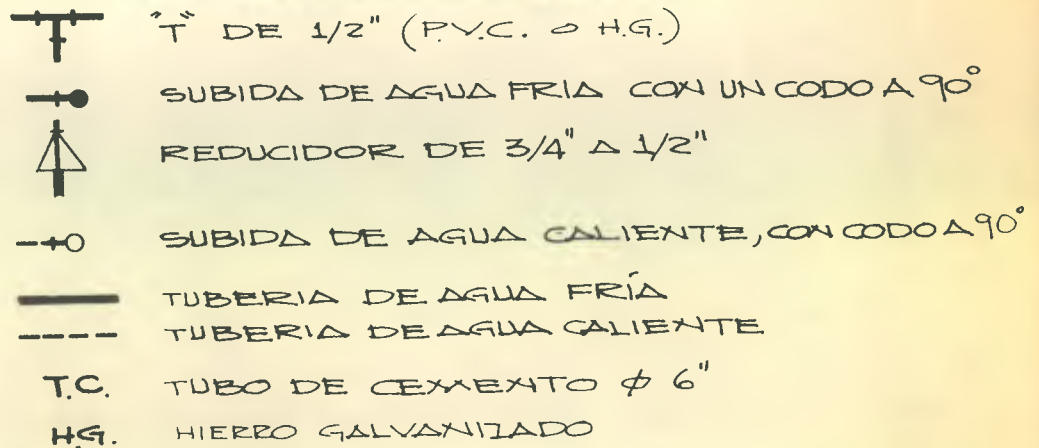 "T" DE 1/2" (P.V.C. O H.G.)
SUBIDA DE AGUA FRIA CON UN CODO A 90°
REDUCIDOR DE 3/4" A 1/2"
SUBIDA DE AGUA CALIENTE, CON CODO A 90°
TUBERIA DE AGUA FRÍA
TUBERIA DE AGUA CALIENTE
T.C. TUBO DE CEMENTO ϕ 6"
H.G. HIERRO GALVANIZADO